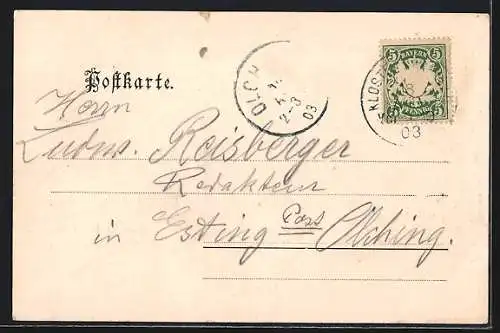 Postkarte.
5 BAYERN 5
PFENNIG
KLOST
8
03
OLCH
2-3
03
Herrn
Ludw. Reisberger
Redakteur
in Esting Post Olching.